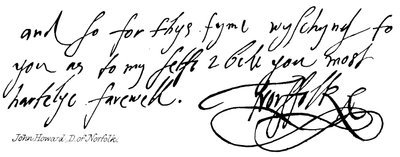 and so for thys tyme wyschyng to
you as to my selff I bide you most
hartelye farewell. Norffolk
John Howard, D. of Norfolk.